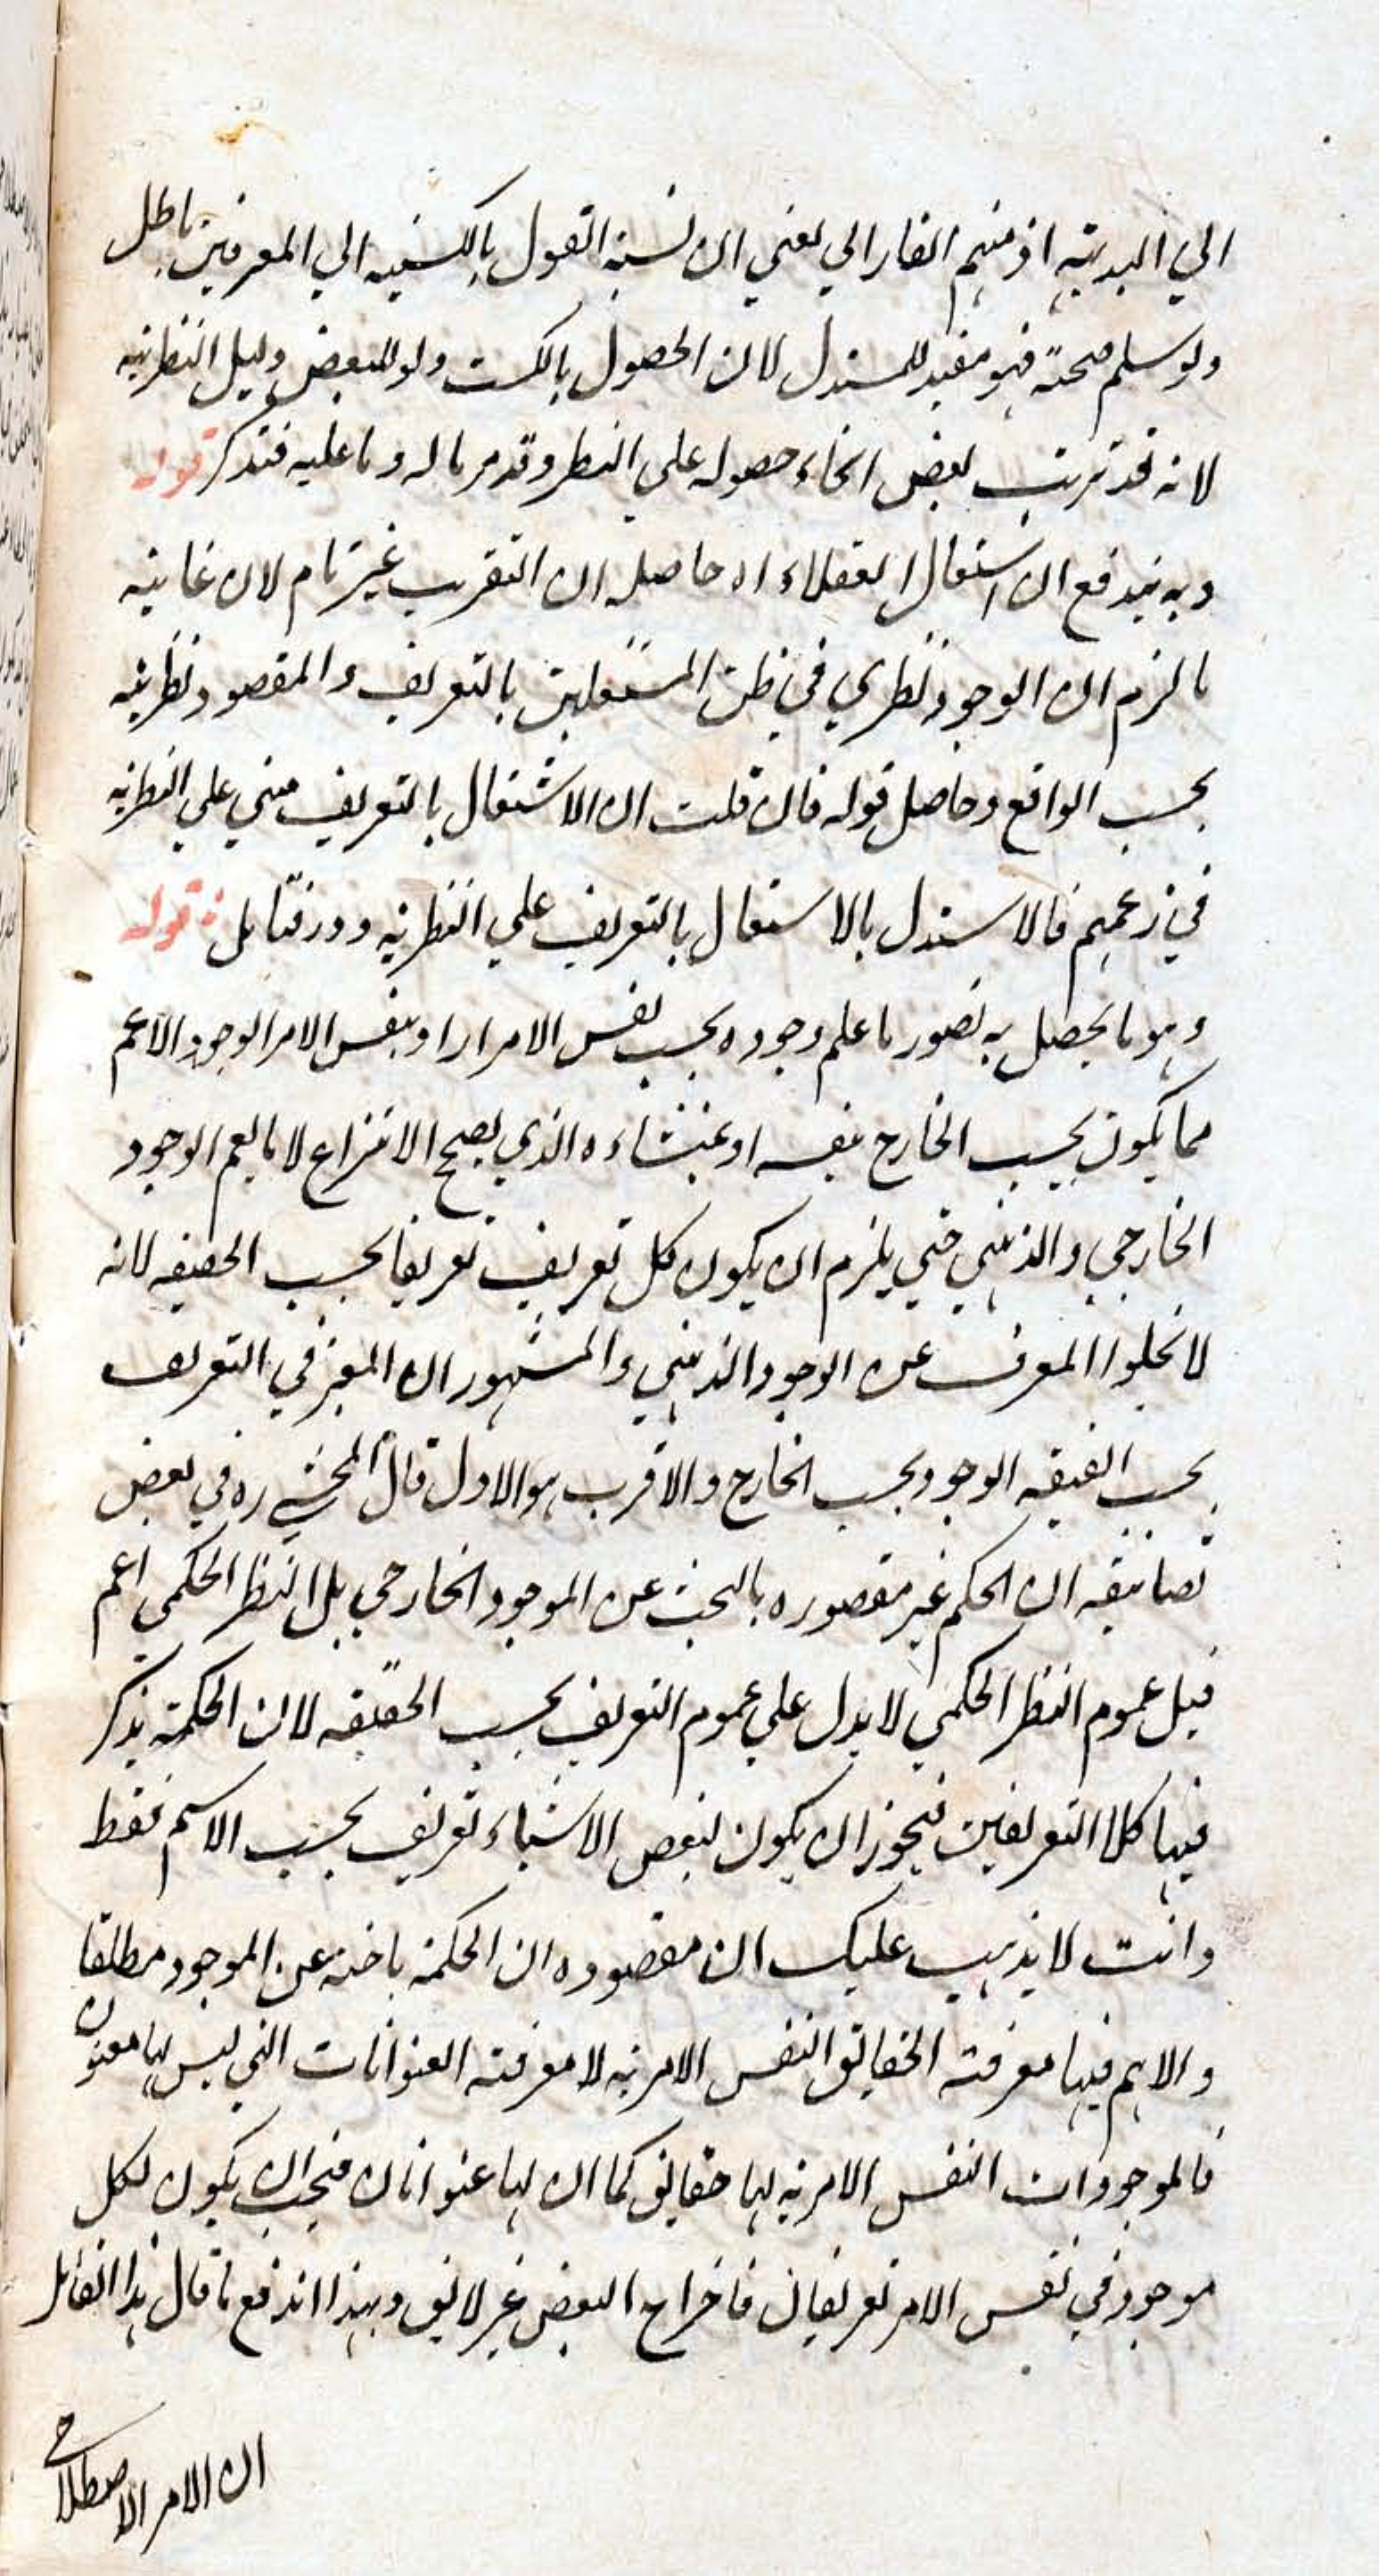 الي البديهة اذ منهم الفارابي يعني ان نسبة القول بالكسبيه الي المعرفين باطل
ولو سلم صحته فهو مفيد للمستدل لان الحصول بالكسب ولو للبعض دليل النظريه
لانه قد ترتب بعض انحاء حصوله علي النظر وقد مر ما له وما عليه فتذكر قوله
وبه يندفع ان اشتغال العقلاء اه حاصله ان التقريب غير تام لان غايته
ما لزم ان الوجود نظري في ظن المشتغلين بالتعريف والمقصود نظريته
بحسب الواقع وحاصل قوله فان قلت ان الاشتغال بالتعريف مبني علي النظريه
في زعمهم فالاستدلال بالاشتغال بالتعريف علي النظريه دور فتامل قوله
وهو ما يحصل به تصور ما علم وجوده بحسب نفس الامر اراد بنفس الامر الوجود الاعم
مما يكون بحسب الخارج بنفسه او بمنشاءه الذي يصح الانتزاع لا ما يعم الوجود
الخارجي والذهني حتي يلزم ان يكون كل تعريف تعريفا بحسب الحقيقه لانه
لا يخلوا المعرف عن الوجود الذهني والمشهور ان المعتبر في التعريف
بحسب الحقيقه الوجود بحسب الخارج والاقرب هو الاول قال المحشي ره في بعض
تصانيفه ان الحكم غير مقصوره بالبحث عن الموجود الخارجي بل النظر الحكمي اعم
قيل عموم النظر الحكمي لا يدل علي عموم التعريف بحسب الحقيقه لان الحكمة يذكر
فيها كلا التعريفين فيجوز ان يكون لبعض الاشياء تعريف بحسب الاسم فقط
وانت لا يذهب عليك ان مقصوده ان الحكمة باحثه عن الموجود مطلقا
والاهم فيها معرفة الحقايق النفس الامريه لا معرفته العنوانات التي ليس لها معنون
فالموجودات النفس الامريه لها حقايق كما ان لها عنوانات فيجب ان يكون لكل
موجود في نفس الامر تعريفان فاخراج البعض غير لايق وبهذا اندفع ما قال هذا القائل
ان الامر الاصطلاحي